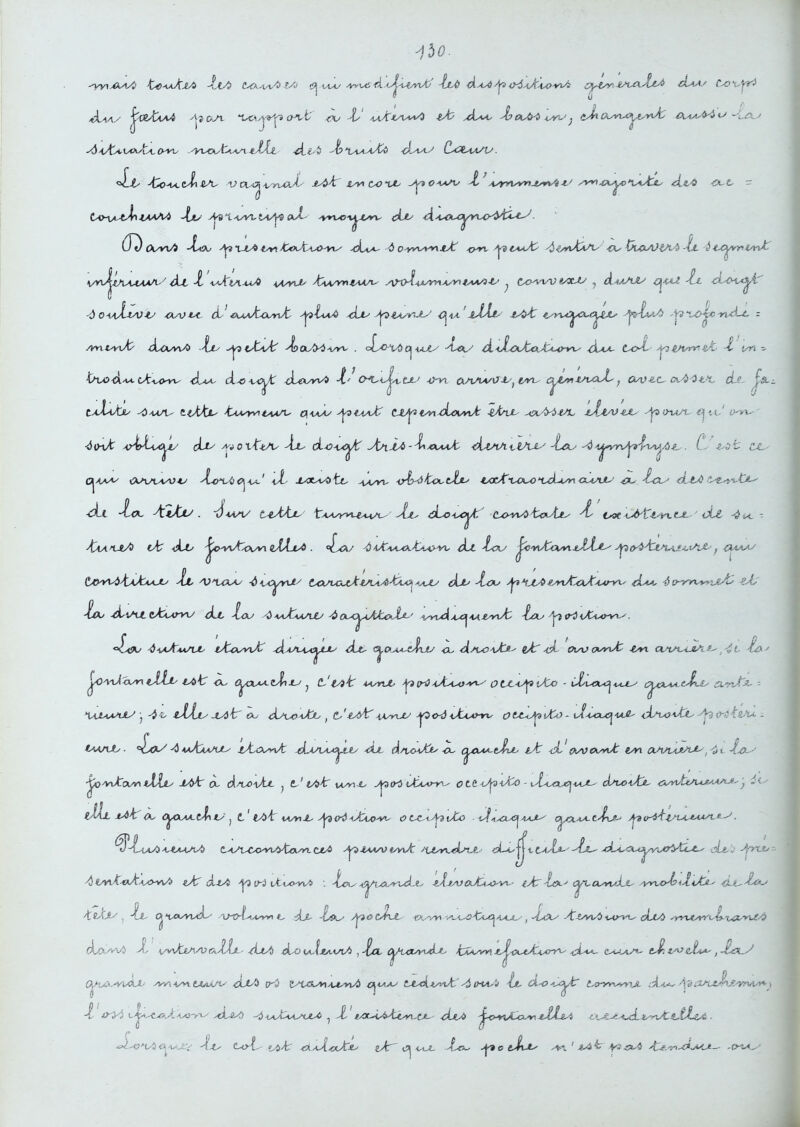 130.
mains toutes les causes qui modifient les dispositions générales du corps
du fœtus par rapport à l'utérus et du bassin, changent aussi la
situation naturelle des bruits du Cœur.
Le toucher vaginal est encore pour l'immense majorité des ac-
coucheurs le principal moyen de diagnostic.
(1) Dans la présentation du sommet on peut sentir à travers le segment
inférieur de l'utérus une tumeur volumineuse, convexe, dure que le doigt
soulève avec d'autant plus de peine qu'elle est engagée plus profondé-
ment dans le petit bassin. Lorsque la dilatation du col permet l'in-
troduction du doigt dans l'orifice on arrive, en général, avec assez de fa-
cilité sur cette tumeur qui peut cependant être assez élevée pour qu'on
soit obligé de porter le doigt très-haut derrière la symphyse. C'est ce
qui arrive lorsqu'il existe un obstacle extraordinaire à la descente
de la tête. Sur cette tumeur le doigt constate l'existence de su-
tures et de fontanelles. La situation de la fontanelle postérieure, qui
constitue le vrai signe caractéristique de la présentation du sommet et
la direction de la suture sagittale indiquent la position.
La suture étant dirigée de gauche à droite et d'avant en arrière, si la
fontanelle est à gauche, c'est une position occipito-iliaque gauche anté-
rieure; si elle est à droite, c'est une position occipito-iliaque droite postéri-
eure. La suture étant dirigée de droite à gauche et d'avant en arrière, si la
fontanelle est à droite, c'est une position occipito-iliaque droite antérieure; si
elle est à gauche, c'est une position occipito-iliaque gauche postérieure.
Plusieurs circonstances peuvent rendre difficile le diagnostic des pré-
sentations et des positions : la grande élévation et la grande mobilité de la
tête, le grand volume de la poche amniotique, la tension des membranes
dans l'intervalle des douleurs, la grande tuméfaction du cuir chevelu, la
grande minceur des os crâniens qui cèdent sous le doigt comme du parchemin,
l'ossification des sutures, l'existence des fontanelles accidentelles.
Lorsque le col est dilaté et que la poche n'est pas tendue ou